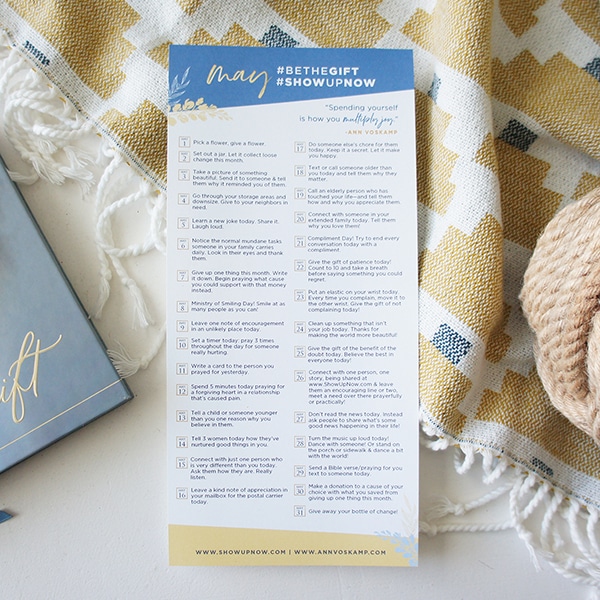 may
#BETHEGIFT
#SHOWUPNOW
"Spending yourself
is how you multiply joy."
-ANN VOSKAMP
MAY 1 Pick a flower, give a flower.
MAY 2 Set out a jar. Let it collect loose
change this month.
MAY 3 Take a picture of something
beautiful. Send it to someone & tell
them why it reminded you of them.
MAY 4 Go through your storage areas and
downsize. Give to your neighbors in
need.
MAY 5 Learn a new joke today. Share it.
Laugh loud.
MAY 6 Notice the normal mundane tasks
someone in your family carries
daily. Look in their eyes and thank
them.
MAY 7 Give up one thing this month. Write
it down. Begin praying what cause
you could support with that money
instead.
MAY 8 Ministry of Smiling Day! Smile at as
many people as you can!
MAY 9 Leave one note of encouragement
in an unlikely place today.
MAY 10 Set a timer today: pray 3 times
throughout the day for someone
really hurting.
MAY 11 Write a card to the person you
prayed for yesterday.
MAY 12 Spend 5 minutes today praying for
a forgiving heart in a relationship
that's caused pain.
MAY 13 Tell a child or someone younger
than you one reason why you
believe in them.
MAY 14 Tell 3 women today how they've
nurtured good things in you.
MAY 15 Connect with just one person who
is very different than you today.
Ask them how they are. Really
listen.
MAY 16 Leave a kind note of appreciation in
your mailbox for the postal carrier
today.
MAY 17 Do someone else's chore for them
today. Keep it a secret. Let it make
you happy.
MAY 18 Text or call someone older than
you today and tell them why they
matter.
MAY 19 Call an elderly person who has
touched your life—and tell them
how and why you appreciate them.
MAY 20 Connect with someone in your
extended family today. Tell them
why you love them!
MAY 21 Compliment Day! Try to end every
conversation today with a
compliment.
MAY 22 Give the gift of patience today!
Count to 10 and take a breath
before saying something you could
regret.
MAY 23 Put an elastic on your wrist today.
Every time you complain, move it to
the other wrist. Give the gift of not
complaining today!
MAY 24 Clean up something that isn't
your job today. Thanks for
making the world more beautiful!
MAY 25 Give the gift of the benefit of the
doubt today. Believe the best in
everyone today!
MAY 26 Connect with one person, one
story, being shared at
www.ShowUpNow.com & leave
them an encouraging line or two,
meet a need over there prayerfully
or practically!
MAY 27 Don't read the news today. Instead
ask people to share what's some
good news happening in their life!
MAY 28 Turn the music up loud today!
Dance with someone! Or stand on
the porch or sidewalk & dance a bit
with the world!
MAY 29 Send a Bible verse/praying for you
text to someone today.
MAY 30 Make a donation to a cause of your
choice with what you saved from
giving up one thing this month.
MAY 31 Give away your bottle of change!
WWW.SHOWUPNOW.COM | WWW.ANNVOSKAMP.COM
ift